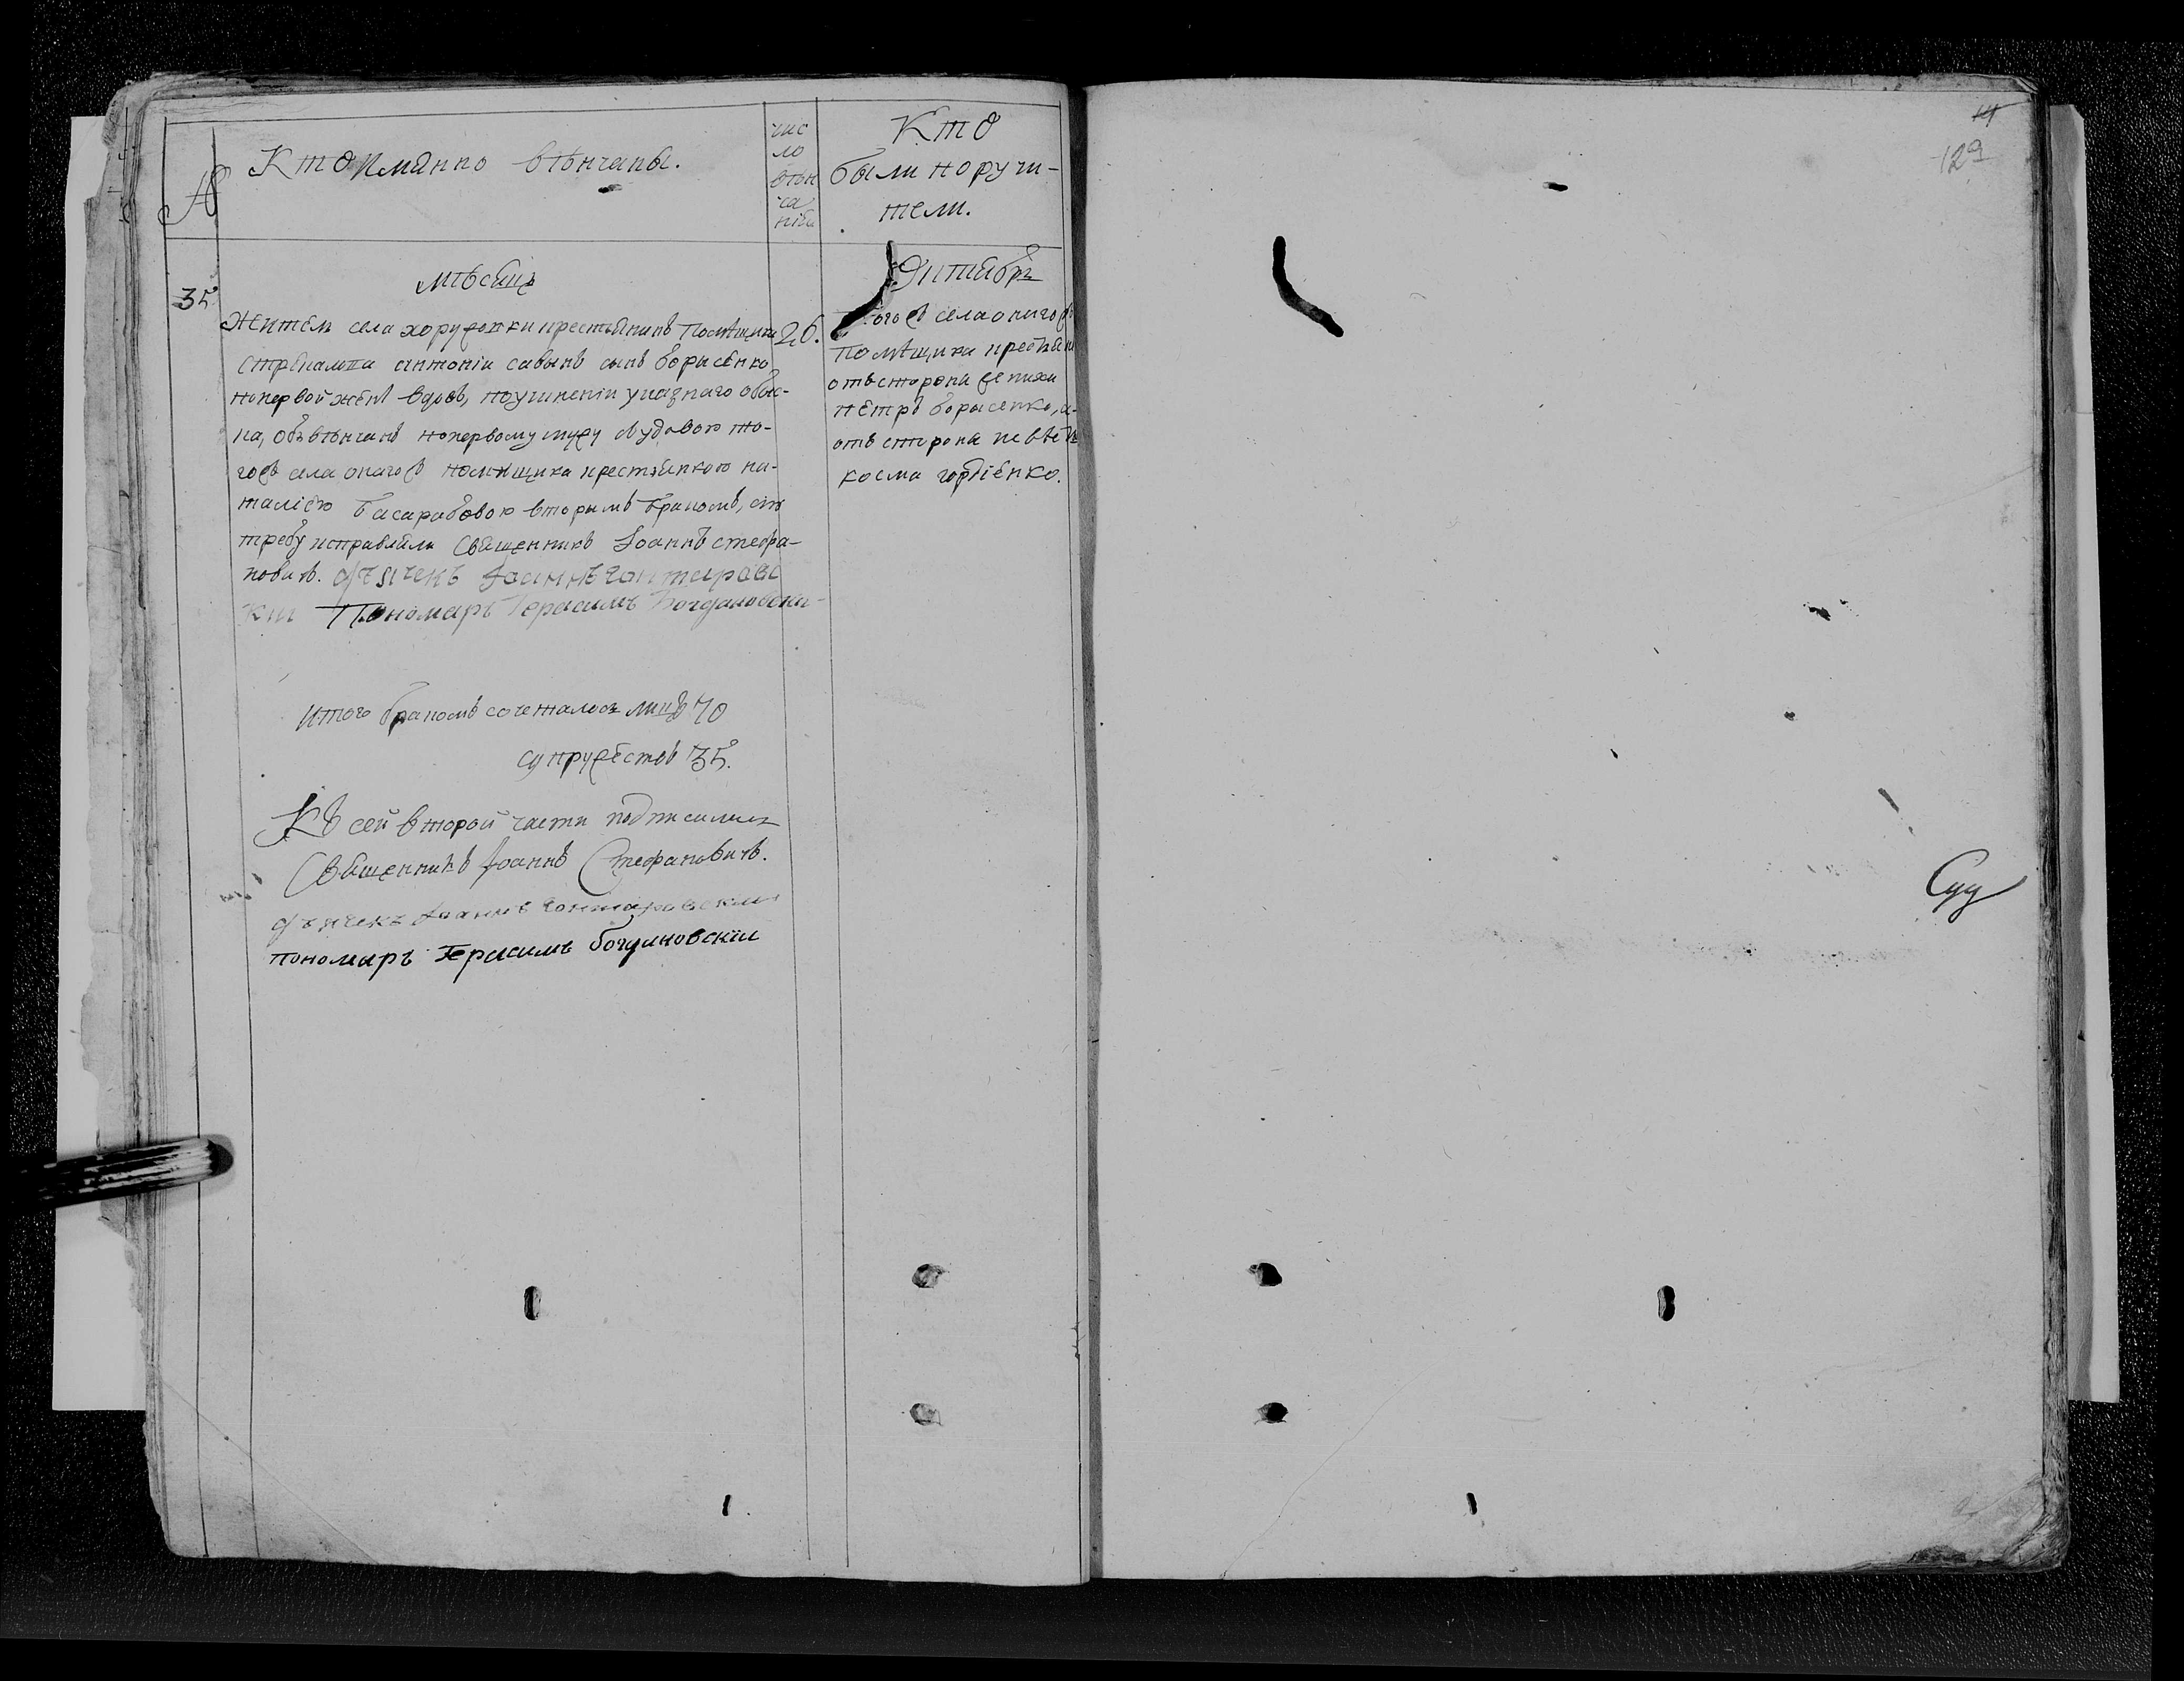 №
Кто имянно вѣнчаны.
чис
ло
вѣн
ча
нія
Кто
были поручи-
тели.
мѣсяцъ
Октябрь
35
Житель села хоружевки крестьянинъ Помѣщика
26.
антоній савинъ сынъ борисенко
по первой женѣ вдовъ, по учиненіи указнаго обыс-
ка, обвѣнчанъ по первому мужу вдовою то-
гожъ села онагожъ помѣщика крестьянкою на-
таліею Басарабовою вторымъ бракомъ, сію
требу исправляли Священникъ Іоаннъ стефа-
новичъ. дьячекъ Іоаннъ гонтаровс
кій Пономарь Герасимъ Богдановскій
тогожъ села оногожъ
Помѣщика
отъ стороны жениха
петръ борисенко, а
отъ стороны невѣсты
косма гордіенко.
Итого бракомъ сочеталось лицъ 70
супружествъ 35.
Къ сей второй части подписались
Священникъ Іоаннъ Стефановичъ.
дьячекъ Іоаннъ гонтаровский
пономарь Герасимъ богдановскій
14
129